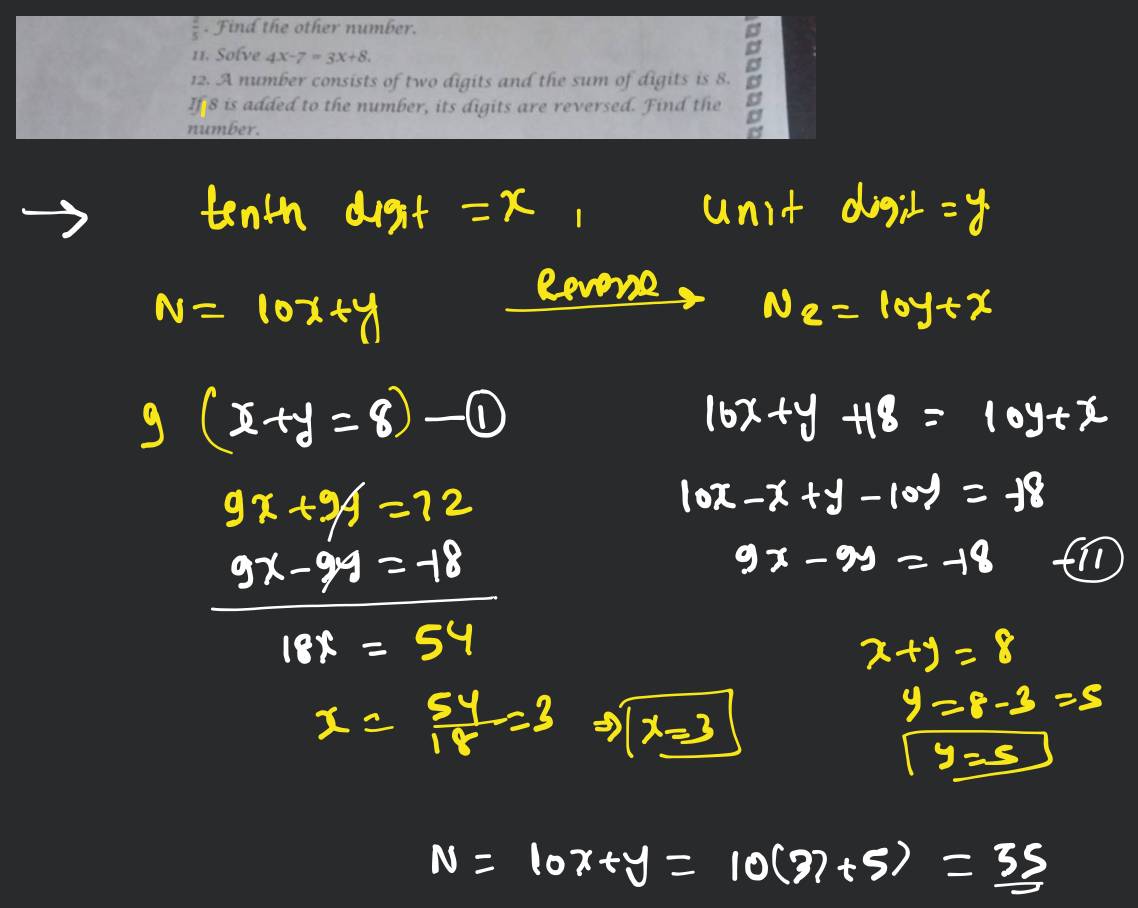 . Find the other number.
11. Solve 4x-7 = 3x+8.
12. A number consists of two digits and the sum of digits is 8.
If 18 is added to the number, its digits are reversed. Find the
number.
→ tenth digit = x , unit digit = y
N = 10x+y Reverse → N2 = 10y+x
9 (x+y = 8) — ①
10x+y +18 = 10y+x
9x+9y = 72
10x-x+y-10y = -18
9x-9y = -18
9x-9y = -18 — ⑪
18x = 54
x+y = 8
x = 54/18 = 3 ⇒ x=3
y = 8-3 = 5
y=5
N = 10x+y = 10(3)+5) = 35